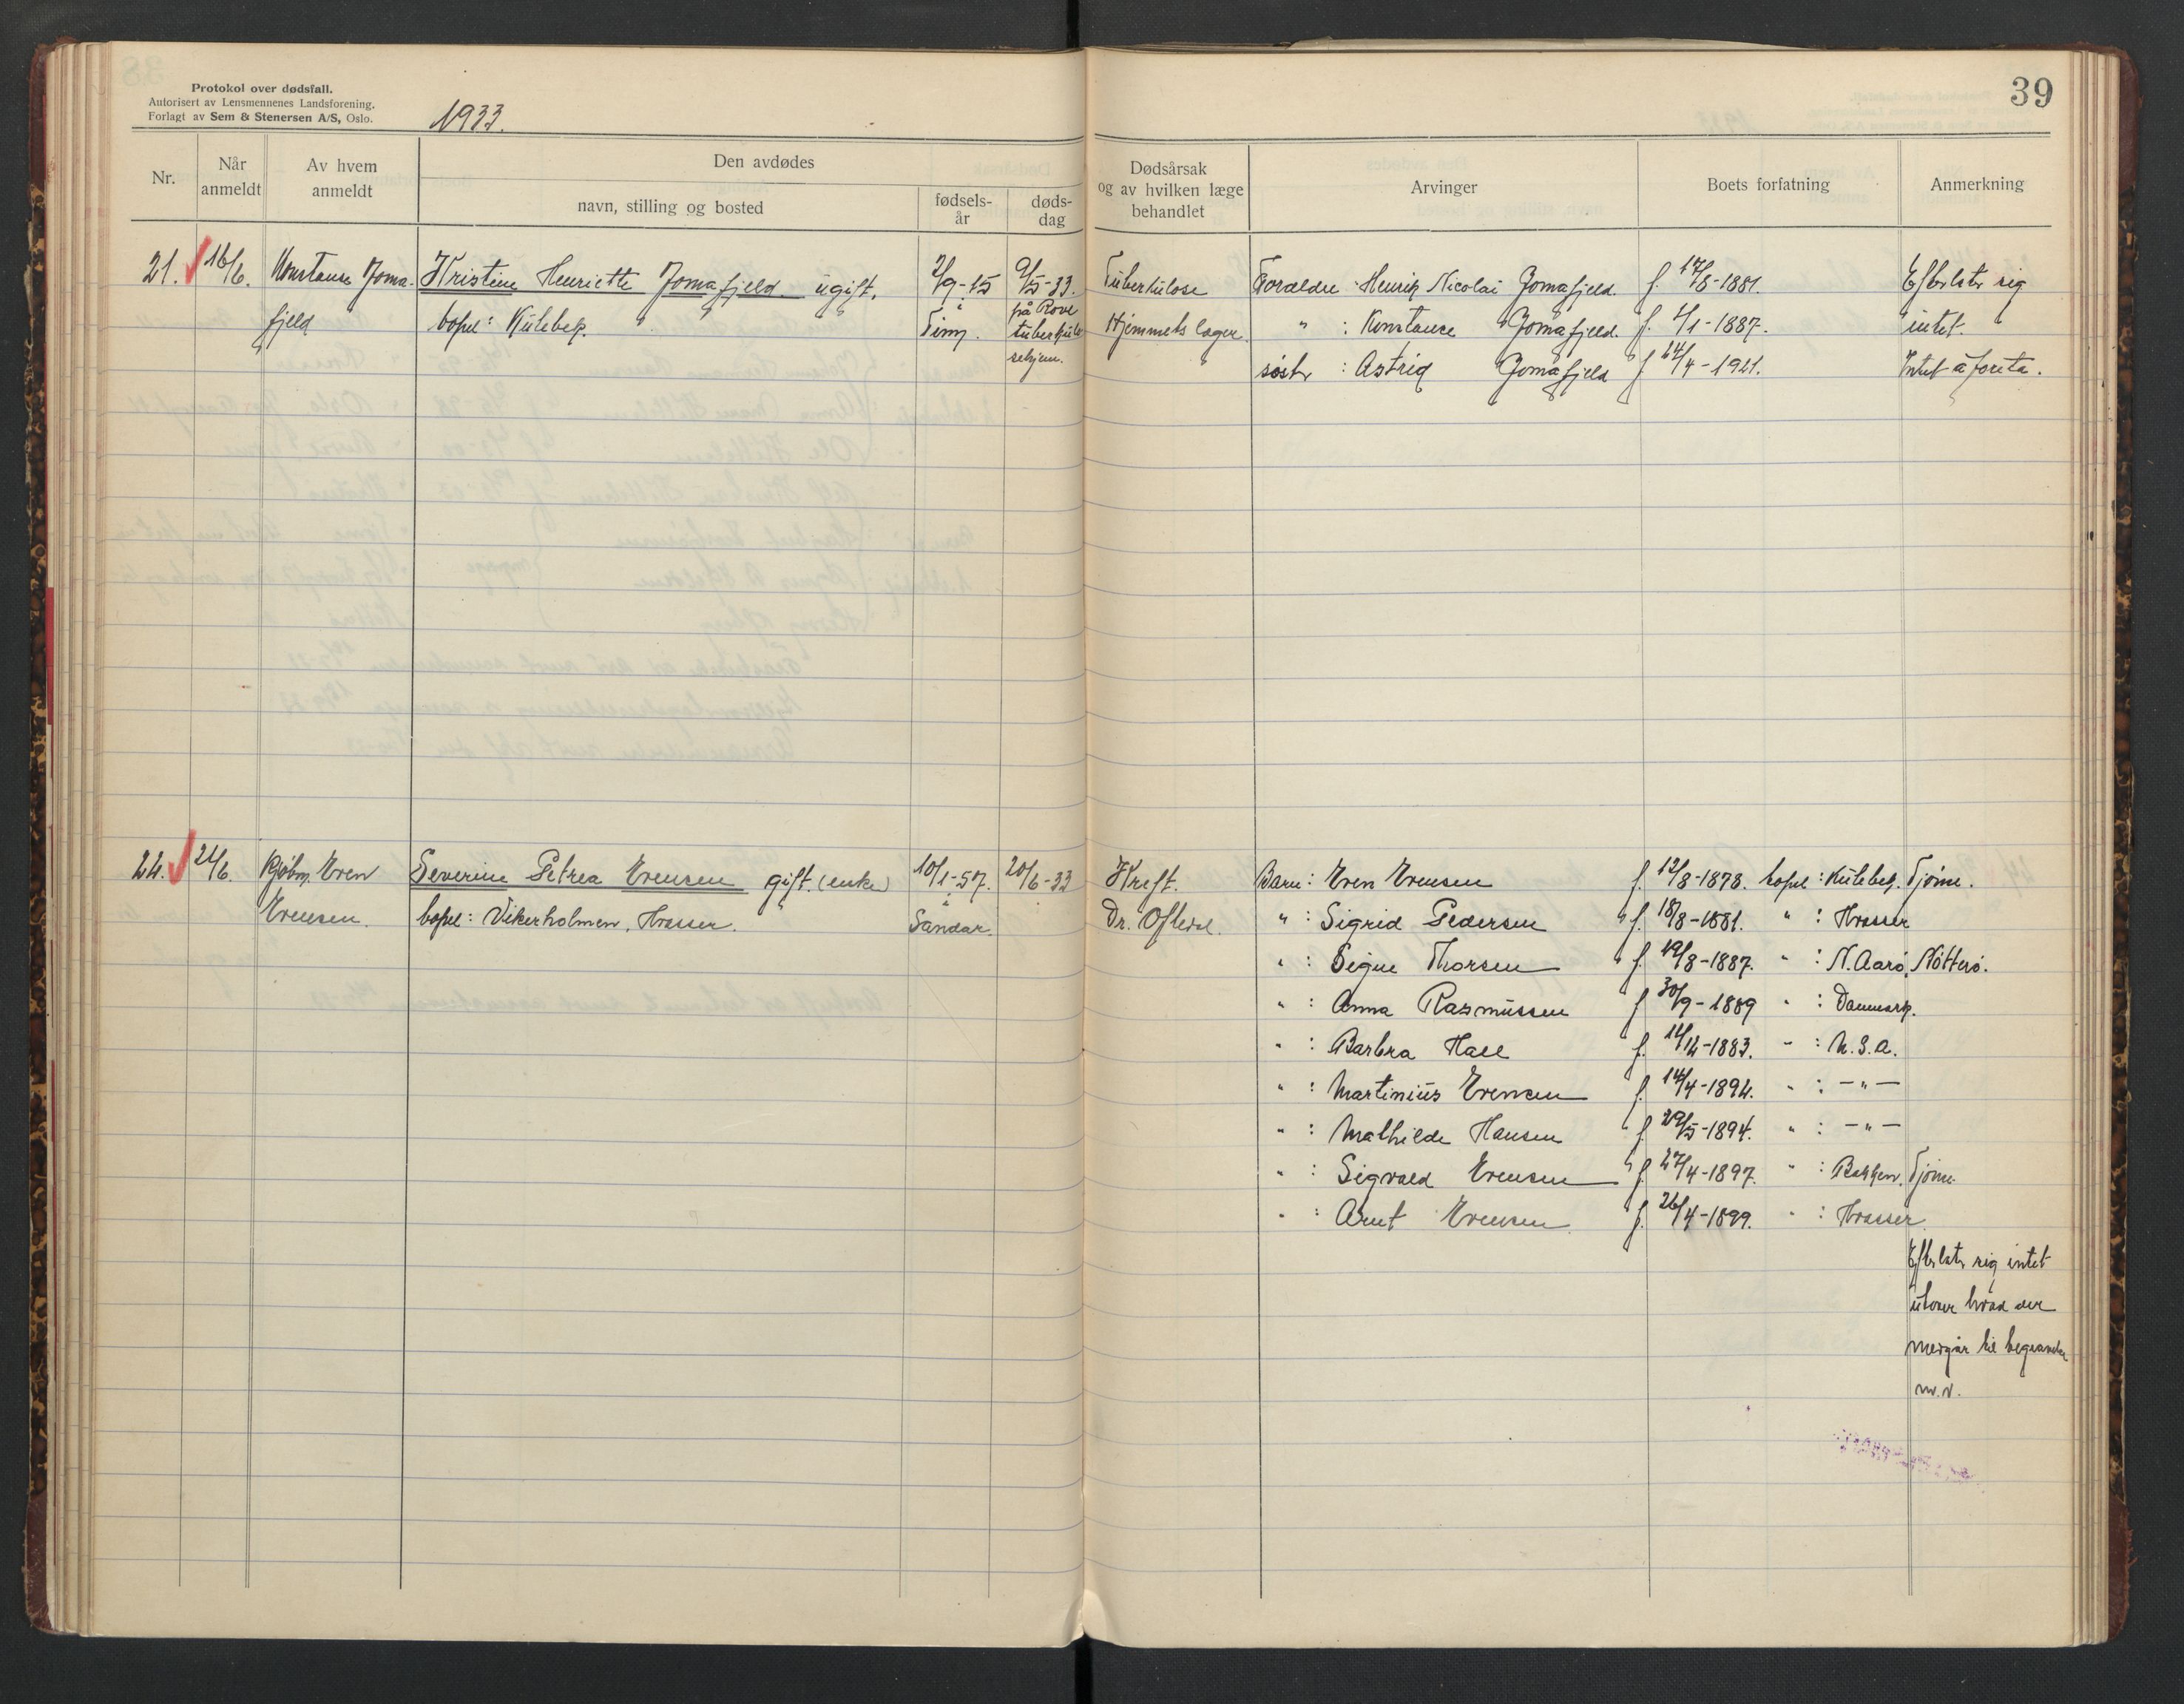 Protokol over dødsfall.
Autorisert av Lensmennenes Landsforening.
Forlagt av Sem & Stenersen A/S, Oslo.
1933.
39
Nr.
Når anmeldt
Av hvem anmeldt
Den avdødes
navn, stilling og bosted
fødsels-år
døds-dag
Dødsårsak og av hvilken læge behandlet
Arvinger
Boets forfatning
Anmerkning
21. 16/6. Konstanse Joma- Kristine Henriette Jomafjeld ugift. 2/9-15 9/5-33. Tuberkulose Forældre Henrik Nicolai Jomafjeld. f. 17/8-1881. Efterlater sig
fjeld bopel: Kulebek. i på Rove Hjemmets læger. " : Konstanse Jomafjeld. f. 1/1-1887. intet.
tuberkulo
sehjem. søster : Astrid Jomafjeld f 24/4-1921. Intet å foreta.
22. 21/6. Kjøbm. Even Severine Petrea Evensen gift. (enke) 10/1-57. 20/6-33 Kreft. Barn: Even Evensen f. 12/8-1878. bopel: Kulebek. Tjøme.
Evensen. bopel: Vikerholmen, Hvasser. i Sandar. Dr. Oftedal. " : Sigrid Pedersen f. 18/8-1881. " : Hvasser
" : Signe Thorsen f. 19/8-1887. " : N. Aarø, Nøtterø.
" : Anna Rasmussen f 30/9-1889 " : Danmark.
" : Barbra Hall f. 14/12-1883. " : U.S.A.
" : Martinius Evensen f. 14/4-1892. " : -"-
" : Mathilde Hansen f 29/5-1894. " : -"-
" : Sigvald Evensen f. 27/4-1897. " : Bakken, Tjøme.
" : Arnt Evensen f. 26/4-1899. " : Hvasser.
Efterlater sig intet
utover hvad der
medgår til begravelse
m.v.